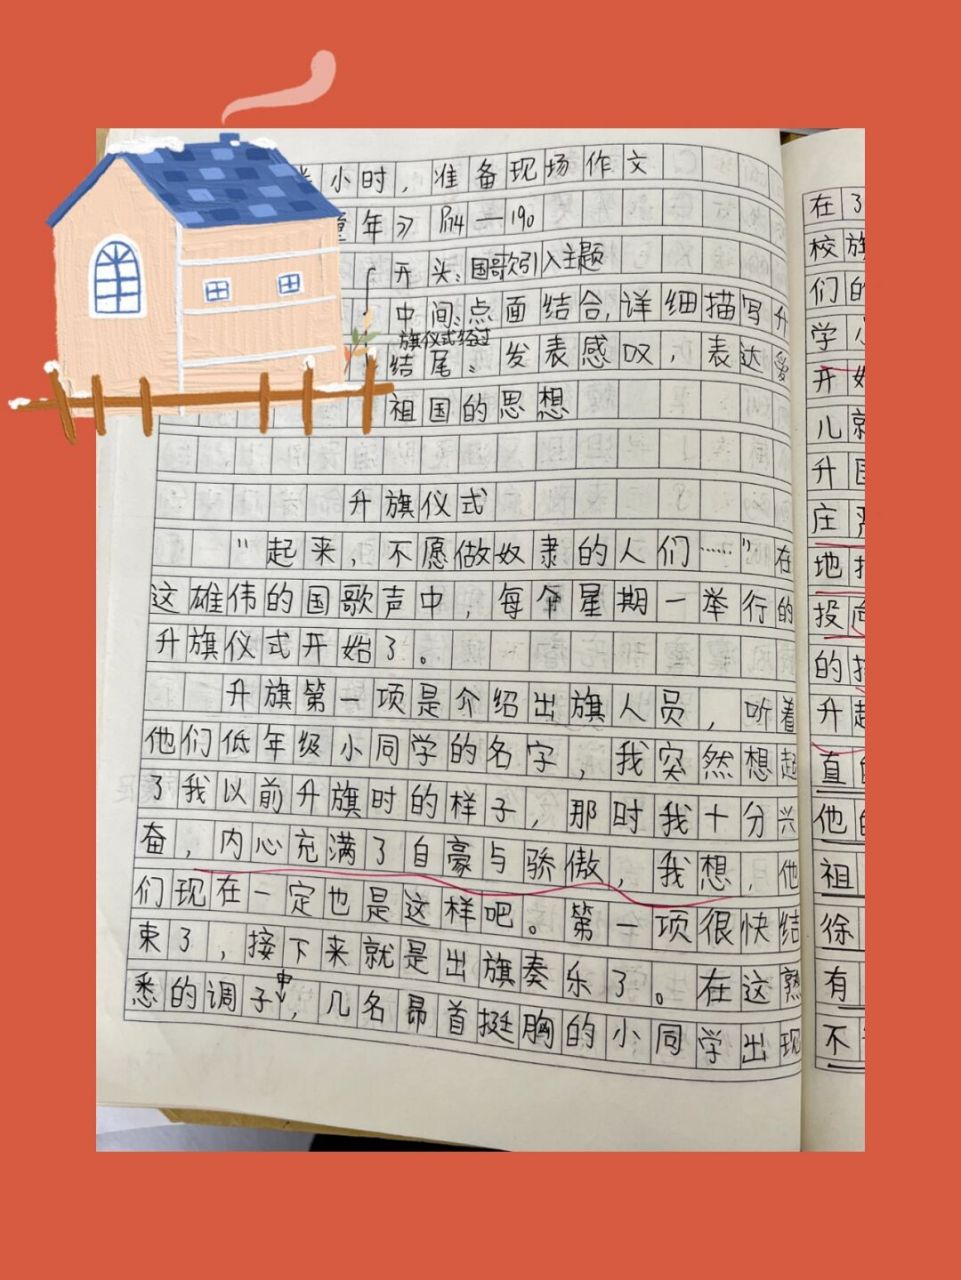 小时，准备现场作文
童年》P174—190
开头：国歌引入主题
中间：点面结合，详细描写升
旗仪式经过
结尾：发表感叹，表达爱
祖国的思想
升旗仪式
“起来，不愿做奴隶的人们……”在
这雄伟的国歌声中，每个星期一举行的
升旗仪式开始了。
升旗第一项是介绍出旗人员，听着
他们低年级小同学的名字，我突然想起
了我以前升旗时的样子，那时我十分兴
奋，内心充满了自豪与骄傲，我想，他
们现在一定也是这样吧。第一项很快结
束了，接下来就是出旗奏乐了。在这熟
悉的调子中，几名昂首挺胸的小同学出现
在了
校旗
们的
学小
开始
儿就
升国
庄严
地
投向
的
升起
直
他的
祖
徐
有
不